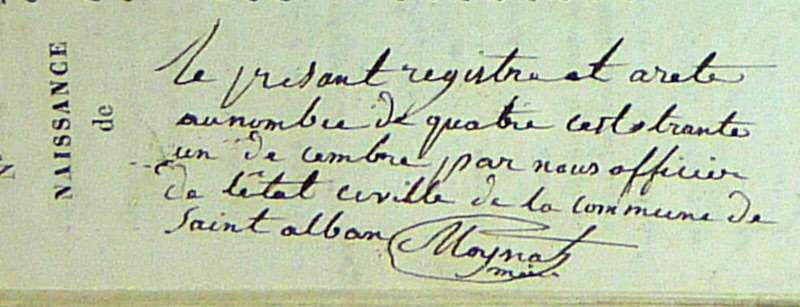 NAISSANCE
de
le présant registre et areté
au nombre de quatre cest trante
un de cembre par nous officier
de l'état civille de la commune de
Saint alban Moynat
maire